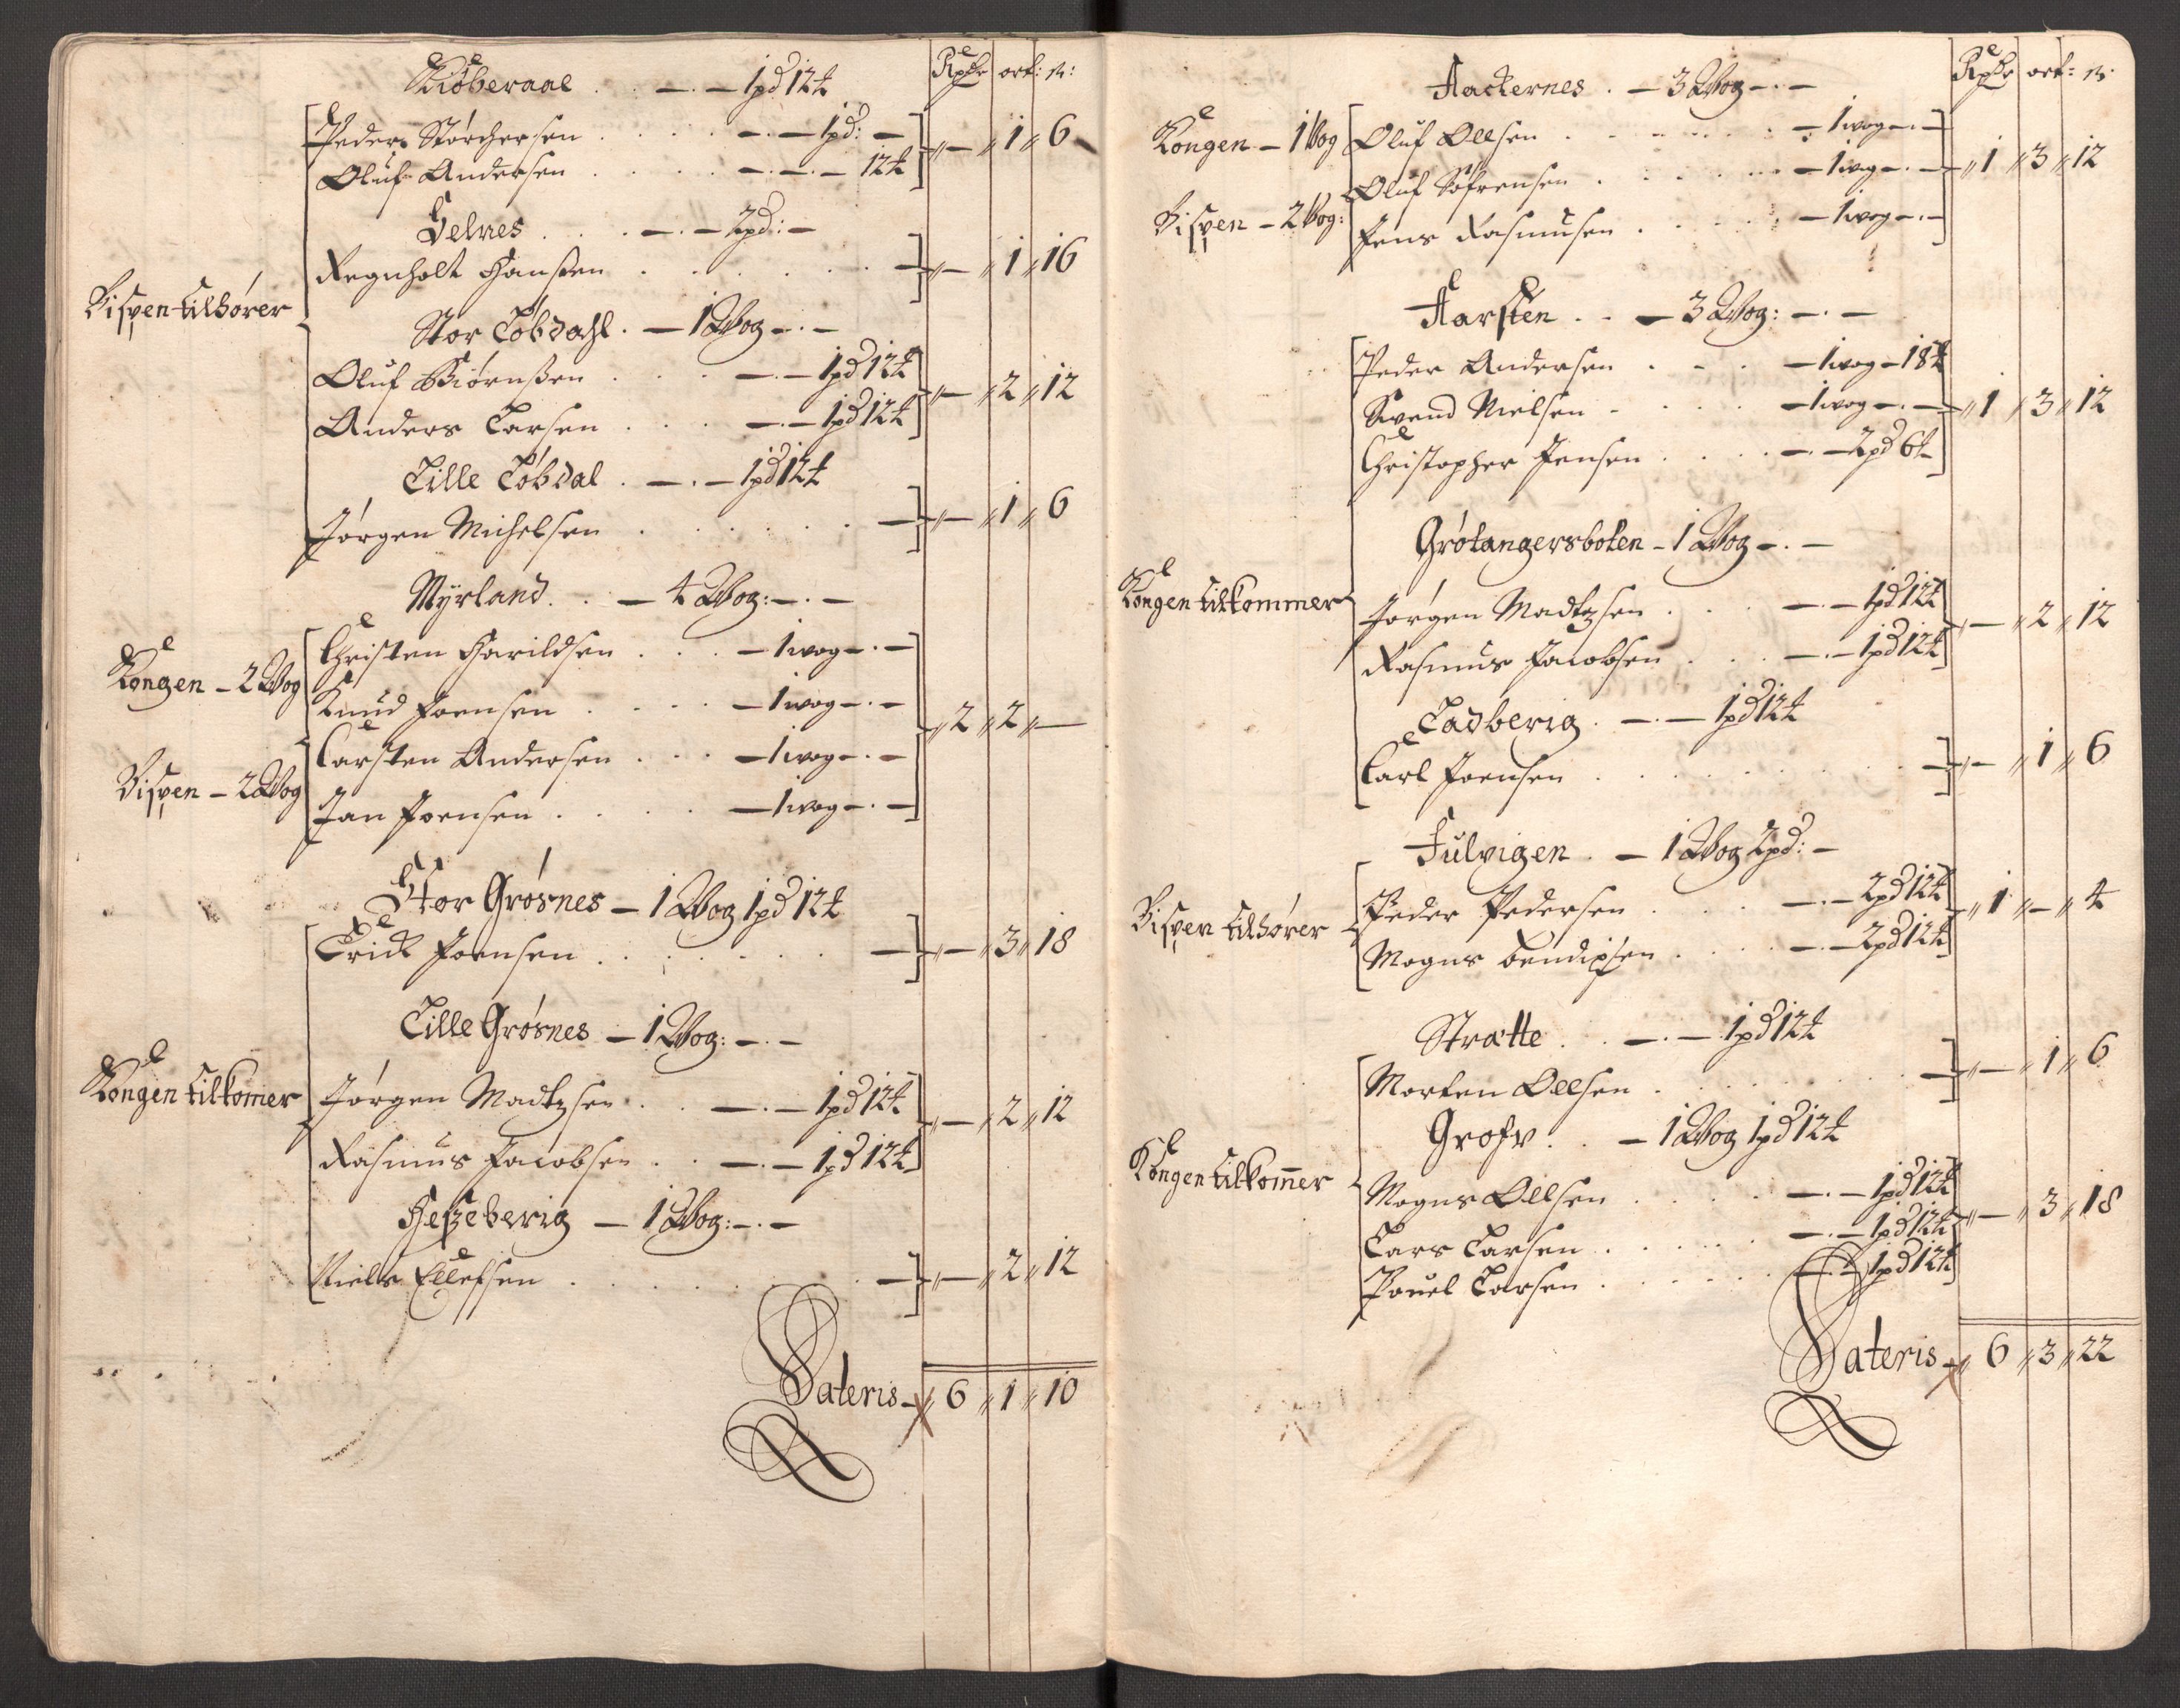 Rixdr ort: ß:
Kiøberaae . . — . — 1pd 12 ℔
Peder Størchersen . . . . — . — 1pd: —
— 1 6
Oluf Andersen . . . . — . — . — 12 ℔
Selnes . . . — . — 2pd: —
Regnholt Hansen . . . . . . —
— 1 16
Bispen tilhører
Stor Tobdahl . — 1 Wog — . —
Oluf Biørnßen . . . — . — 1pd 12 ℔
— 2 12
Anders Larsen . . . — . — 1pd 12 ℔
Lille Tobdal . — . — 1pd 12 ℔
Jørgen Michelsen . . . . . —
— 1 6
Myrland . . — 4 Wog: — . —
Christen Harildsen . . . — 1 wog — . —
Kongen — 2 Wog
Knud Joensen . . . . — 1 wog — . —
2 2 —
Carsten Andersen . . . — 1 wog — . —
Bispen — 2 Wog
Jan Joensen . . . . — 1 wog — . —
Stor Grøsnes — 1 Wog 1pd 12 ℔
Erick Joensen . . . . . . —
— 3 18
Lille Grøsnes — 1 Wog: — . —
Kongen tilkomer
Jørgen Madtzsen . . — . — 1pd 12 ℔
— 2 12
Rasmus Jacobsen . . — . — 1pd 12 ℔
Heseberig — 1 Wog: — . —
Niels Ellefsen . . . . . . —
— 2 12
Lateris — 6 1 10
Rixdr ort: ß:
Aackernes . — 3 Wog — . —
Kongen — 1 Wog
Oluf Ollsen . . . . . . — 1 wog — . —
Oluf Sofrensen . . . . . — 1 wog — . —
1 3 12
Bispen — 2 Wog:
Jens Rasmusen . . . . — 1 wog — . —
Aarsten . . — 3 Wog: — . —
Peder Andersen . . . — 1 wog — 18 ℔
Svend Nielsen . . . . — 1 wog — . —
1 3 12
Christopher Jensen . . . . — . — 2pd 6 ℔
Grøtangersboten — 1 Wog — . —
Kongen tilkommer
Jørgen Madtzsen . . . — . — 1pd 12 ℔
— 2 12
Rasmus Jacobsen . . . — . — 1pd 12 ℔
Ladberig . — . — 1pd 12 ℔
Carl Joensen . . . . . . . —
— 1 6
Fulvigen . — 1 Wog 2pd: —
Bispen tilhører
Peder Pedersen . . . — . — 2pd 12 ℔
1 — 4
Mogns Bendixsen . . . — . — 2pd 12 ℔
Strætte . . — . — 1pd 12 ℔
Morten Ollsen . . . . . . —
— 1 6
Grofv . . — 1 Wog 1pd 12 ℔
Kongen tilkommer
Mogns Ollsen . . . . — . — 1pd 12 ℔
— 3 18
Lars Larsen . . . . . — . — 1pd 12 ℔
Pouel Larsen . . . . . — . — 1pd 12 ℔
Lateris — 6 3 22